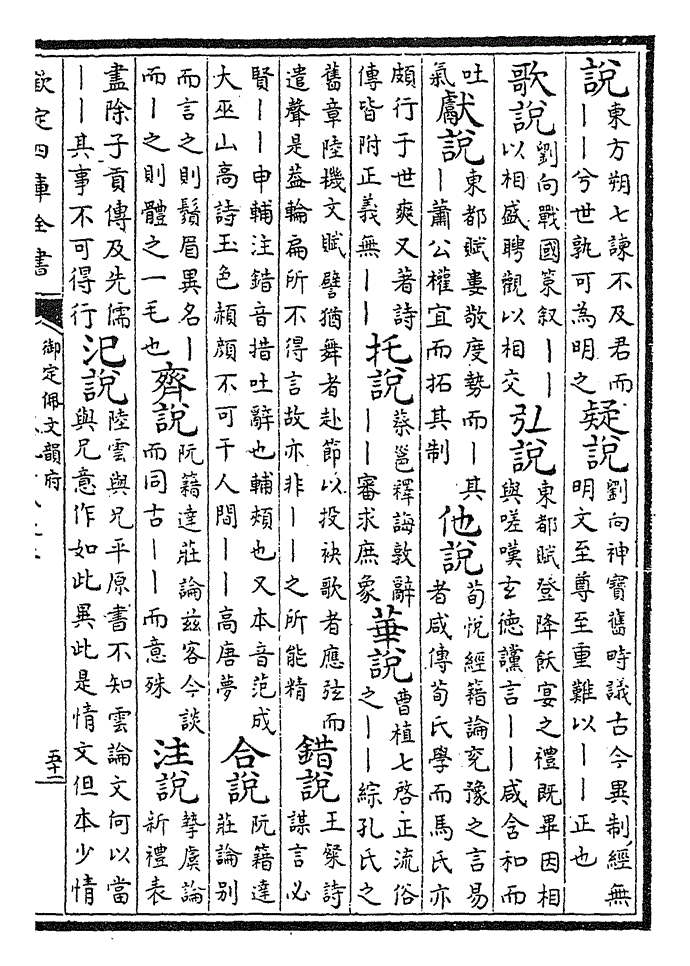 說
東方朔七諫不及君而
丨丨兮世孰可為明之
疑說
劉向神寶舊時議古今異制經無
明文至尊至重難以丨丨正也
歌說
劉向戰國策叙丨丨
以相盛聘觀以相交
弘說
東都賦登降飫宴之禮既畢因相
與嗟嘆玄德讜言丨丨咸含和而
吐
氣
獻說
東都賦婁敬度勢而丨其
丨蕭公權宜而拓其制
他說
荀悅經籍論兖豫之言易
者咸傳荀氏學而馬氏亦
頗行于世爽又著詩
傳皆附正義無丨丨
托說
蔡邕釋誨敦辭
丨丨審求庶象
華說
曹植七啓正流俗
之丨丨綜孔氏之
舊章陸機文賦譬猶舞者赴節以投袂歌者應弦而
遣聲是蓋輪扁所不得言故亦非丨丨之所能精
錯說
王粲詩
謀言必
賢丨丨申輔注錯音措吐辭也輔頰也又本音范成
大巫山高詩玉色頩顏不可干人間丨丨高唐夢
合說
阮籍達
莊論別
而言之則鬚眉異名丨
而丨之則體之一毛也
齊說
阮籍達莊論兹客今談
而同古丨丨而意殊
注說
摯虞論
新禮表
盡除子貢傳及先儒
丨丨其事不可得行
汜說
陸雲與兄平原書不知雲論文何以當
與兄意作如此異此是情文但本少情
欽定四庫全書
御定佩文韻府
五十二